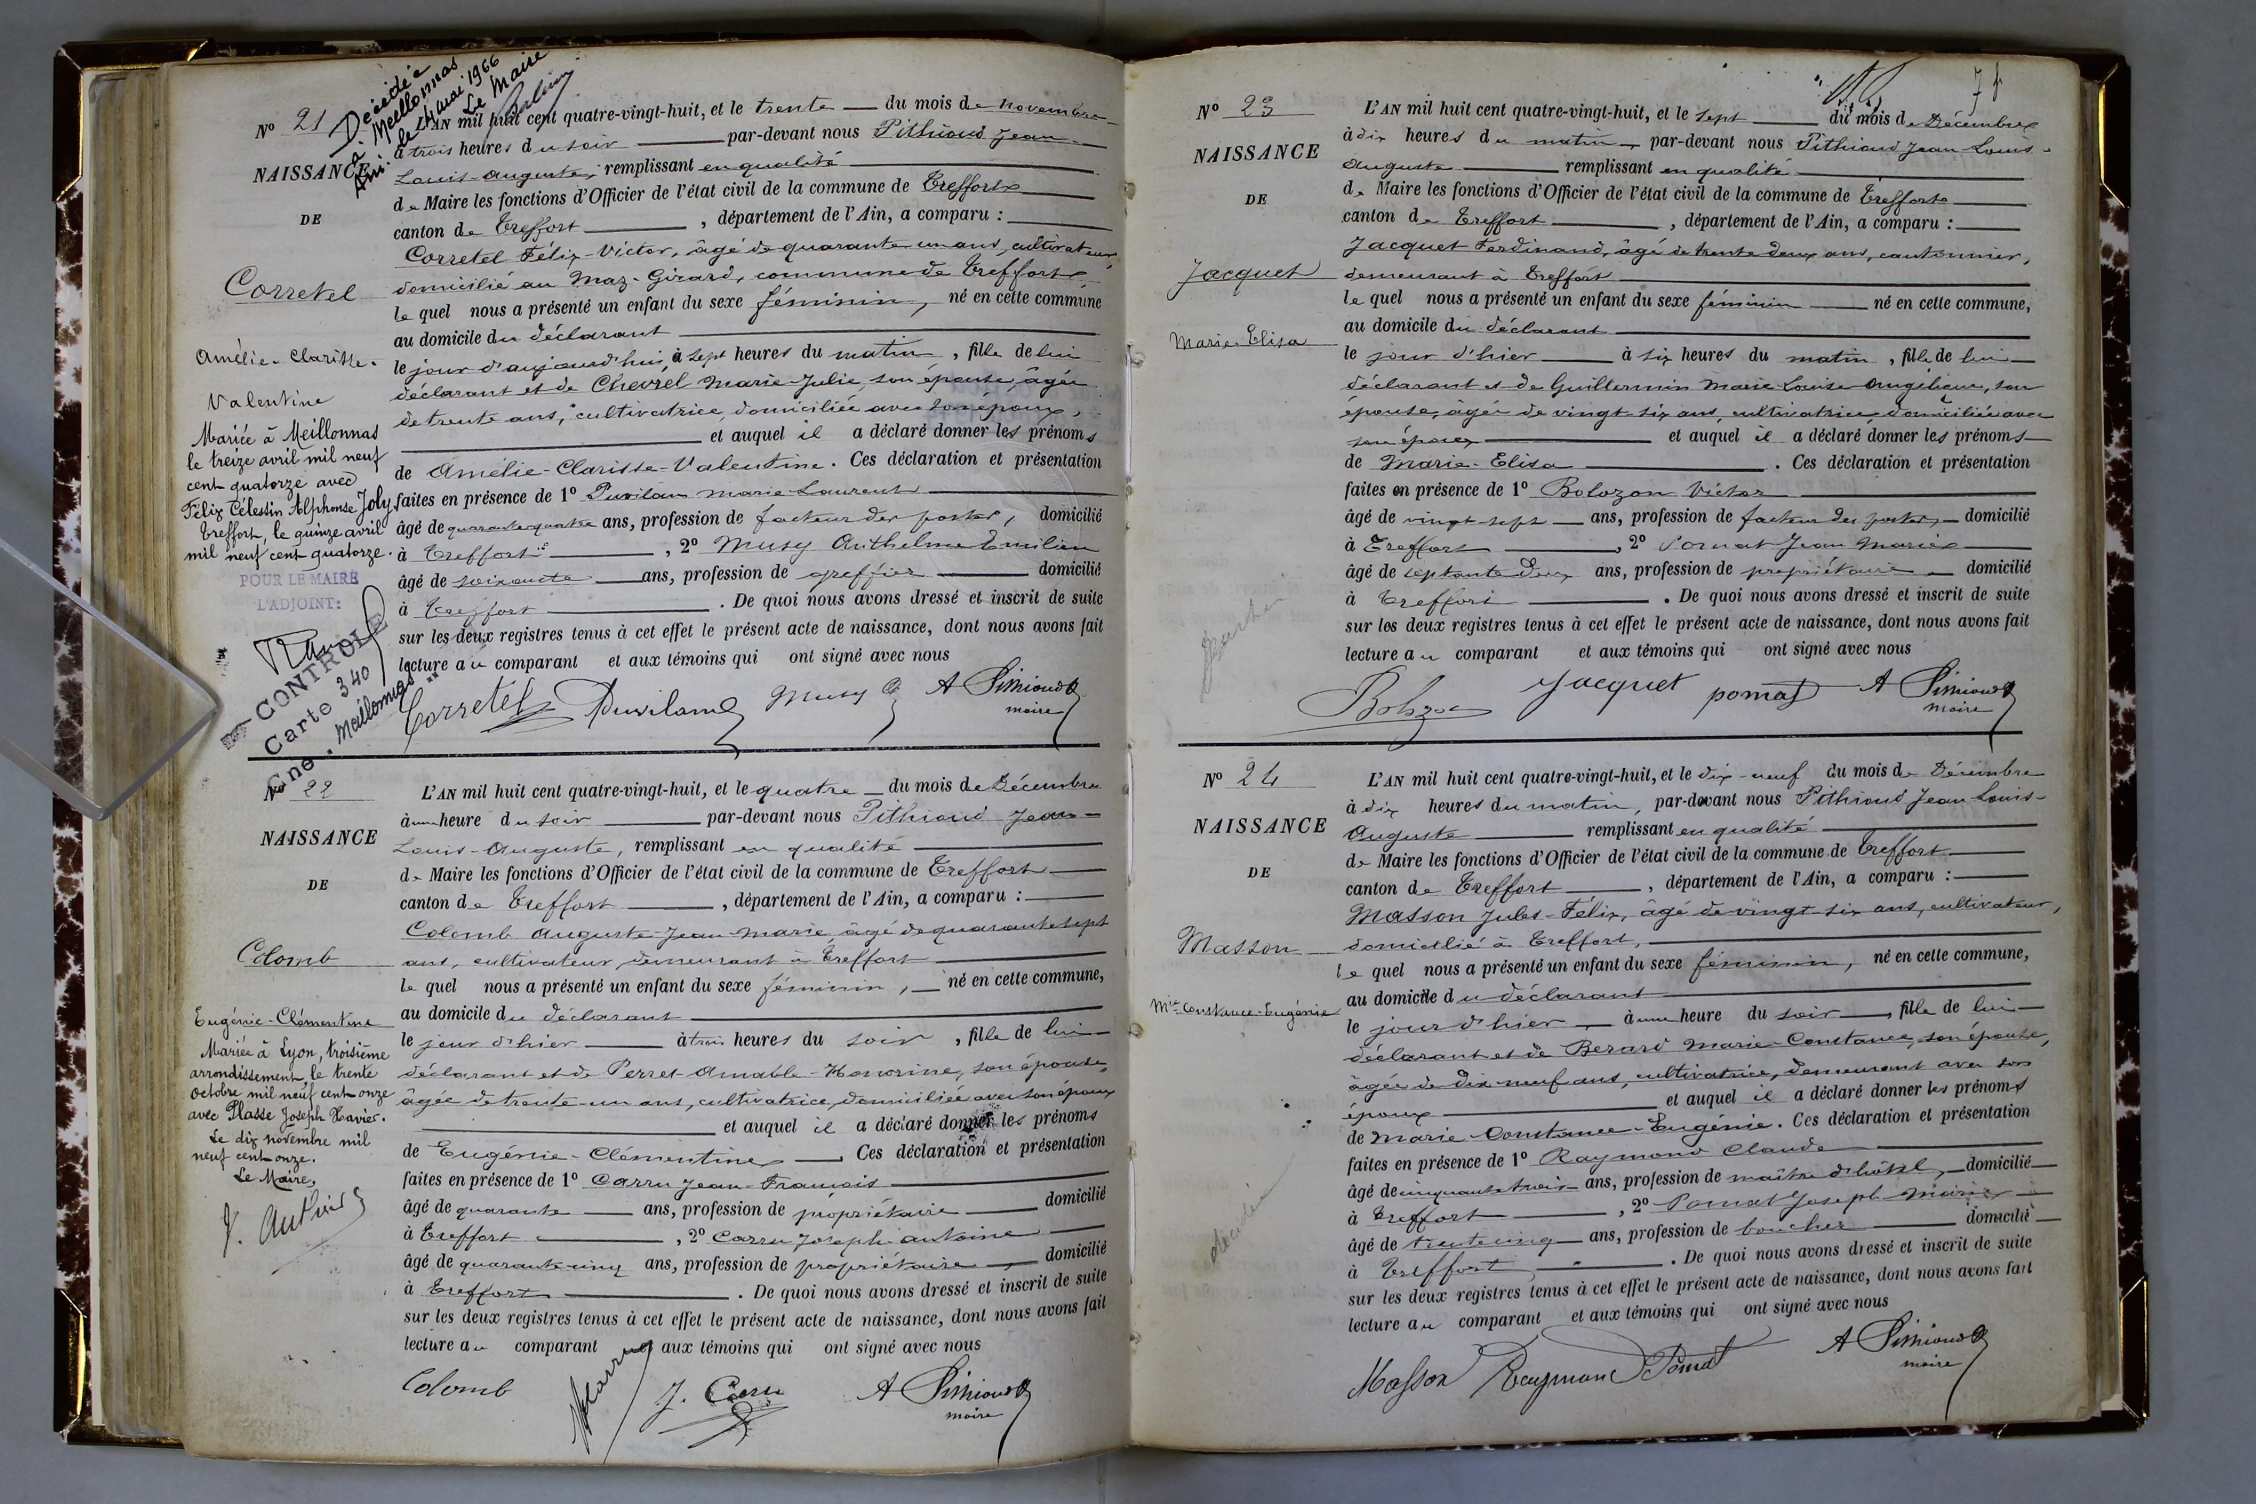 Décédée
à Meillonnas
Ain. le 24 mai 1966
Le Maire
No 21
NAISSANCE
DE
Corretel
Amélie-Clarisse-
Valentine
Mariée à Meillonnas
le treize avril mil neuf
cent quatorze avec
Félix Célestin Alphonse Joly
Treffort, le quinze avril
mil neuf cent quatorze.
POUR LE MAIRE
L'ADJOINT:
CONTROLE
Carte 340
Cne. Meillonnas
L'AN mil huit cent quatre-vingt-huit, et le trente du mois de novembre
à trois heures du soir par-devant nous Pithioud Jean-
Louis-Auguste, remplissant en qualité
de Maire les fonctions d'Officier de l'état civil de la commune de Treffort
canton de Treffort, département de l'Ain, a comparu :
Corretel Félix-Victor, âgé de quarante un ans, cultivateur,
domicilié au Maz-Girard, commune de Treffort,
le quel nous a présenté un enfant du sexe féminin, né en cette commune
au domicile du déclarant
le jour d'aujourd'hui, à sept heures du matin, fille de lui
déclarant et de Chevrel Marie-Julie, son épouse, âgée
de trente ans, cultivatrice, domiciliée avec son époux,
et auquel il a déclaré donner les prénoms
de Amélie-Clarisse-Valentine. Ces déclaration et présentation
faites en présence de 1o Puvilan Marie-Laurent
âgé de quarante quatre ans, profession de facteur des postes, domicilié
à Treffort, 2o Musy Anthelme Emilien
âgé de soixante ans, profession de greffier domicilié
à Treffort. De quoi nous avons dressé et inscrit de suite
sur les deux registres tenus à cet effet le présent acte de naissance, dont nous avons fait
lecture au comparant et aux témoins qui ont signé avec nous
Corretel Puviland Musy A Pithioud
maire
No 22
NAISSANCE
DE
Colomb
Eugénie-Clémentine
Mariée à Lyon, troisième
arrondissement, le trente
octobre mil neuf cent onze
avec Plasse Joseph Xavier.
Le dix novembre mil
neuf cent onze.
Le Maire,
L'AN mil huit cent quatre-vingt-huit, et le quatre du mois de Décembre
à une heure du soir par-devant nous Pithioud Jean-
Louis-Auguste, remplissant en qualité
de Maire les fonctions d'Officier de l'état civil de la commune de Treffort
canton de Treffort, département de l'Ain, a comparu :
Colomb Auguste-Jean-Marie âgé de quarante sept
ans, cultivateur, demeurant à Treffort
le quel nous a présenté un enfant du sexe féminin, né en cette commune,
au domicile du déclarant
le jour d'hier à trois heures du soir, fille de lui
déclarant et de Perret Amable-Honorine, son épouse,
âgée de trente-un ans, cultivatrice, domiciliée avec son époux
et auquel il a déclaré donner les prénoms
de Eugénie-Clémentine. Ces déclaration et présentation
faites en présence de 1o Carru Jean-François
âgé de quarante ans, profession de propriétaire domicilié
à Treffort, 2o Carru Joseph-Antoine
âgé de quarante-cinq ans, profession de propriétaire, domicilié
à Treffort. De quoi nous avons dressé et inscrit de suite
sur les deux registres tenus à cet effet le présent acte de naissance, dont nous avons fait
lecture au comparant aux témoins qui ont signé avec nous
Colomb J. Carru A Pithioud
maire
No 23
NAISSANCE
DE
Jacquet
Marie-Elisa
L'AN mil huit cent quatre-vingt-huit, et le sept du mois de Décembre
à dix heures du matin, par-devant nous Pithioud Jean-Louis-
Auguste remplissant en qualité
de Maire les fonctions d'Officier de l'état civil de la commune de Treffort
canton de Treffort, département de l'Ain, a comparu :
Jacquet Ferdinand, âgé de trente deux ans, cantonnier,
demeurant à Treffort
le quel nous a présenté un enfant du sexe féminin né en cette commune,
au domicile du déclarant
le jour d'hier à six heures du matin, fille de lui
déclarant et de Guillermin Marie-Louise-Angélique, son
épouse, âgée de vingt-six ans, cultivatrice domiciliée avec
son époux et auquel il a déclaré donner les prénoms
de Marie-Elisa. Ces déclaration et présentation
faites en présence de 1o Bolozon Victor
âgé de vingt-sept ans, profession de facteur des postes, domicilié
à Treffort, 2o Pomat Jean Marie
âgé de septante deux ans, profession de propriétaire domicilié
à Treffort. De quoi nous avons dressé et inscrit de suite
sur les deux registres tenus à cet effet le présent acte de naissance, dont nous avons fait
lecture au comparant et aux témoins qui ont signé avec nous
Bolozon Jacquet pomat A Pithioud
maire
No 24
NAISSANCE
DE
Masson
Mie-Constance-Eugénie
L'AN mil huit cent quatre-vingt-huit, et le dix-neuf du mois de Décembre
à dix heures du matin, par-devant nous Pithioud Jean-Louis-
Auguste remplissant en qualité
de Maire les fonctions d'Officier de l'état civil de la commune de Treffort
canton de Treffort, département de l'Ain, a comparu :
Masson Jules-Félix, âgé de vingt-six ans, cultivateur,
domicilié à Treffort,
le quel nous a présenté un enfant du sexe féminin, né en cette commune,
au domicile du déclarant
le jour d'hier, à une heure du soir, fille de lui
déclarant et de Berard Marie-Constance, son épouse,
âgée de dix-neuf ans, cultivatrice, demeurant avec son
époux et auquel il a déclaré donner les prénoms
de Marie-Constance-Eugénie. Ces déclaration et présentation
faites en présence de 1o Raymond Claude
âgé de cinquante trois ans, profession de maître d'hôtel, domicilié
à Treffort, 2o Pomat Joseph-Marie
âgé de trente cinq ans, profession de boucher domicilié
à Treffort. De quoi nous avons dressé et inscrit de suite
sur les deux registres tenus à cet effet le présent acte de naissance, dont nous avons fait
lecture au comparant et aux témoins qui ont signé avec nous
Masson Raymond Pomat A Pithioud
maire